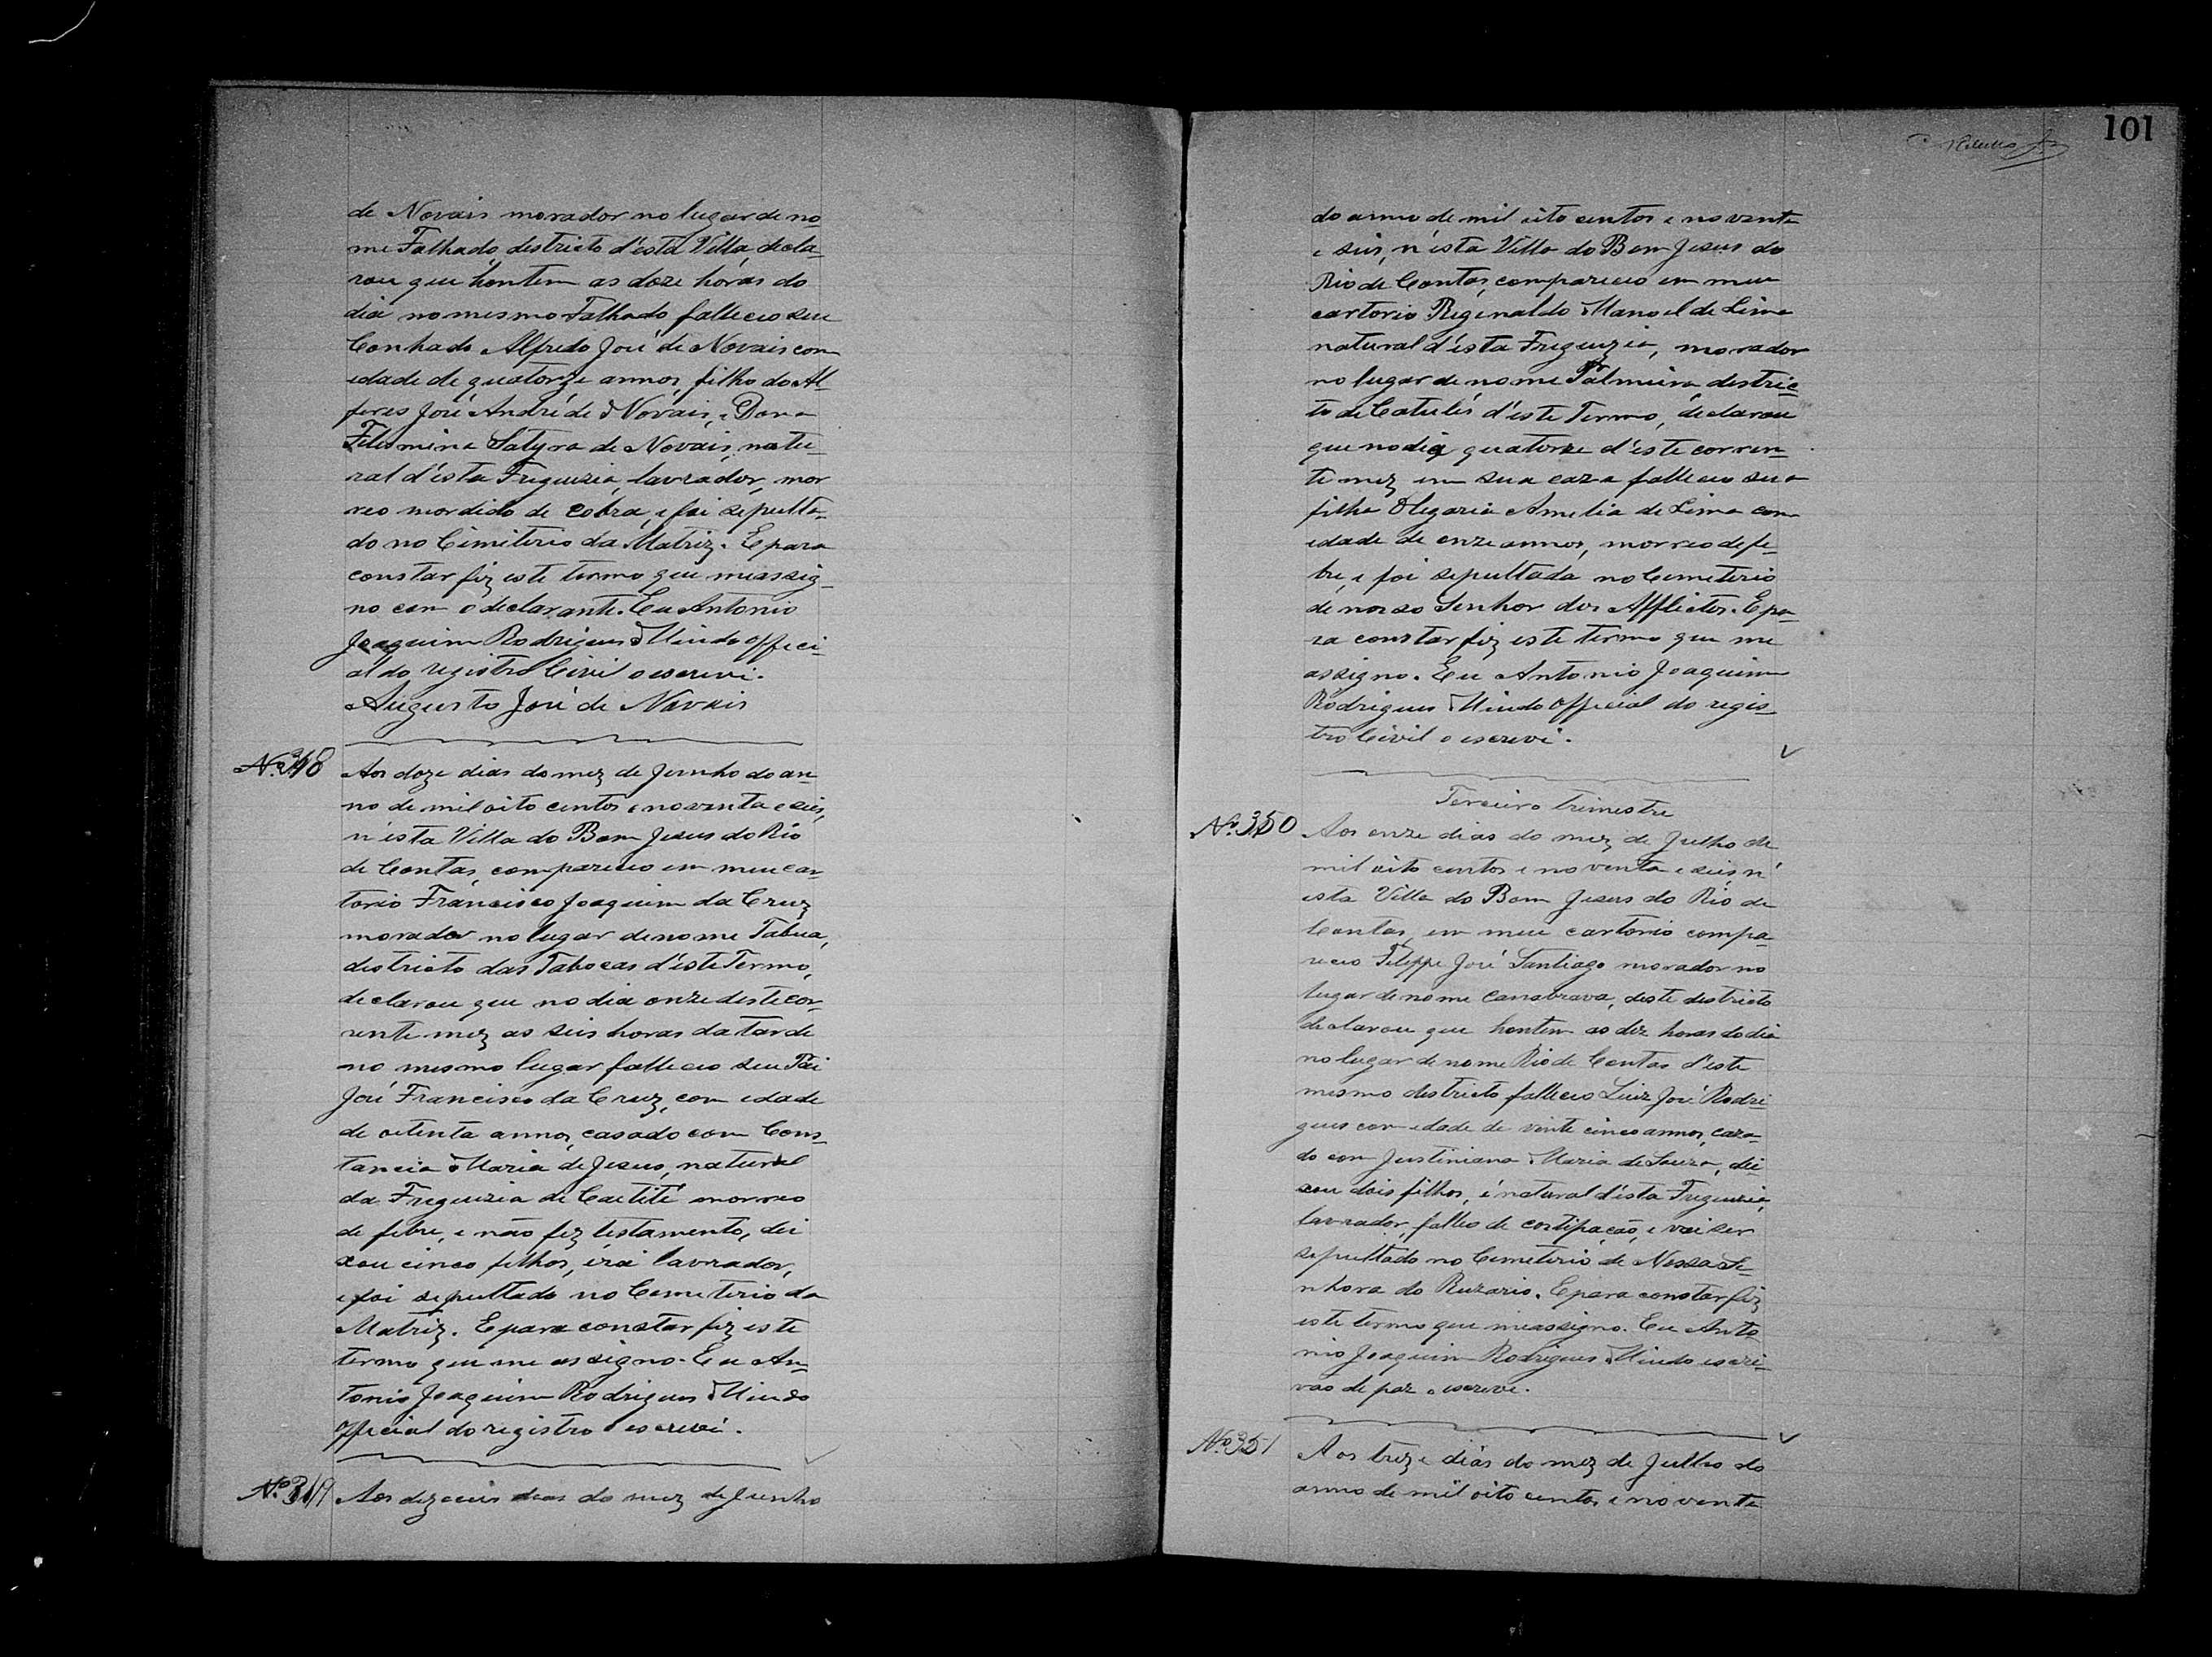 de Novais morador no lugar de no
me Talhado, destricto d'ésta Villa, decla-
rou que hontem as doze horas do
dia no mesmo Talhado falleceo seu
Conhado Alfredo José de Novais com
idade de quatorze annos, filho do Al-
feres José André de Novais, e Dona
Filismina Satyra de Novais, natu-
ral d'ésta Freguezia, lavrador, mor
reo mordido de cobra, e foi sepulta-
do no Cimiterio da Matriz. E para
constar fiz este termo que me assig-
no com o declarante. Eu Antonio
Joaquim Rodrigues Offici-
al do registro Civil o escrevi.
Augusto José de Novais
Nº 348
Aos doze dias do mez de Junho do an-
no de mil oito centos e noventa e seis,
n'ésta Villa do Bom Jesus do Rio
de Contas, compareceo em meu car-
torio Francisco Joaquim da Cruz
morador no lugar de nome Tabua,
destricto das Tabocas d'éste Termo,
declarou que no dia onze deste cor-
rente mez as seis horas da tarde
no mesmo lugar falleceo seu Pai
José Francisco da Cruz, com idade
de oitenta annos, casado com Cons-
tancia Maria de Jesus, natural
da Freguezia de Caetité morreo
de febre, e não fez testamento, dei
xou cinco filhos, éra lavrador,
e foi sepultado no Cemeterio da
Matriz. E para constar fiz este
termo que me assigno. Eu An-
tonio Joaquim Rodrigues
Official do registro o escrevi.
Nº 349
Aos dezeseis dias do mez de Junho
101
do anno de mil oito centos e noventa
e seis, n'ésta Villa do Bom Jesus do
Rio de Contas, compareceo em meu
cartorio Reginaldo Manoel de Lima
natural d'ésta Freguezia, morador
no lugar de nome Palmeira destric-
to de Catulés d'éste Termo, declarou
que no dia quatorze d'éste corren-
te mez em sua caza falleceo sua
filha Olegaria Amelia de Lima com
idade de onze annos, morreo de fe-
bre, e foi sepultada no Cemeterio
de nosso Senhor dos Afflictos. E pa-
ra constar fiz este termo que me
assigno. Eu Antonio Joaquim
Rodrigues Official do regis-
tro Civil o escrevi.
Terceiro trimestre
Nº 350
Aos onze dias do mez de Julho de
mil oito centos e noventa e seis n'
esta Villa do Bom Jesus do Rio de
Contas, em meu cartorio compa-
receo Felippe José Santiago morador no
lugar de nome Canabrava, deste destricto
declarou que hontem as dez horas do dia
no lugar de nome Rio de Contas d'este
mesmo destricto falleceo Luiz José Rodri
gues com idade de vinte cinco annos, caza-
do com Justiniana Maria de Souza, dei
xou dois filhos, é natural d'ésta Freguezia,
lavrador, falleo de costipação, e vai ser
sepultado no Cemeterio de Nossa Se-
nhora do Ruzario. E para constar fiz
este termo que me assigno. Eu Anto
nio Joaquim Rodrigues escri-
vão de paz o escrevi.
Nº 351
Aos treze dias do mez de Julho do
anno de mil oito centos e noventa